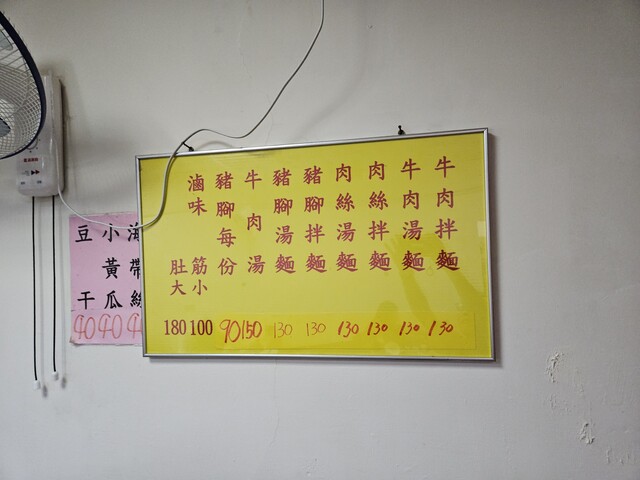 牛肉拌麵 130
牛肉湯麵 130
肉絲拌麵 130
肉絲湯麵 130
豬腳拌麵 130
豬腳湯麵 130
牛肉湯 150
豬腳每份 90
滷味 筋小 100
肚大 180
海帶絲 4
小黃瓜 40
豆干 40